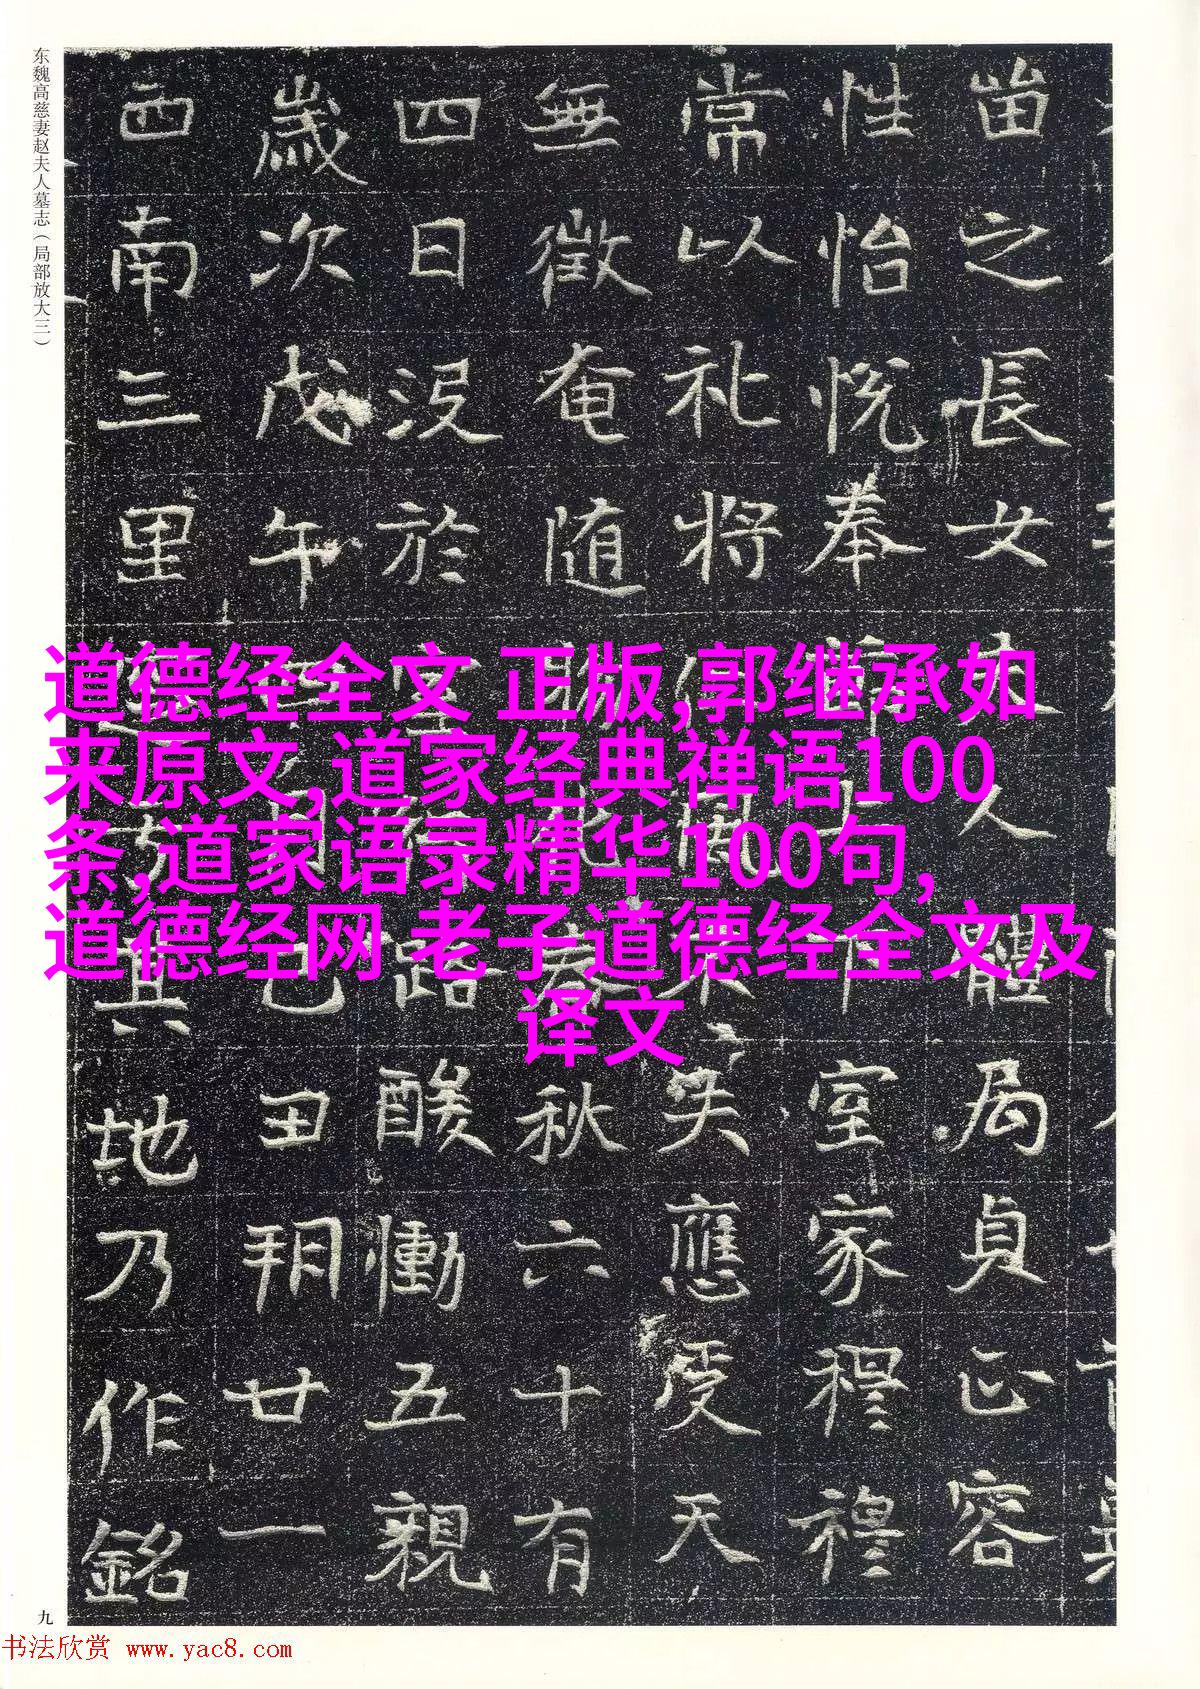 东魏高慈妻赵夫人墓志（局部放大三）
之長女夫人體局貞正容
性怡悦奉上下室家穆穆
常以礼將失應受天
無徵奄随化春秋六十有
四日没於室路酸慟五親
歲次戊午月己丑朔廿一
西南三里其地乃作銘
道德经全文 正版,郭继承如
来原文,道家经典禅语100
条,道家语录精华100句,
道德经网 老子道德经全文及
译文
九
书法欣赏 www.yac8.com